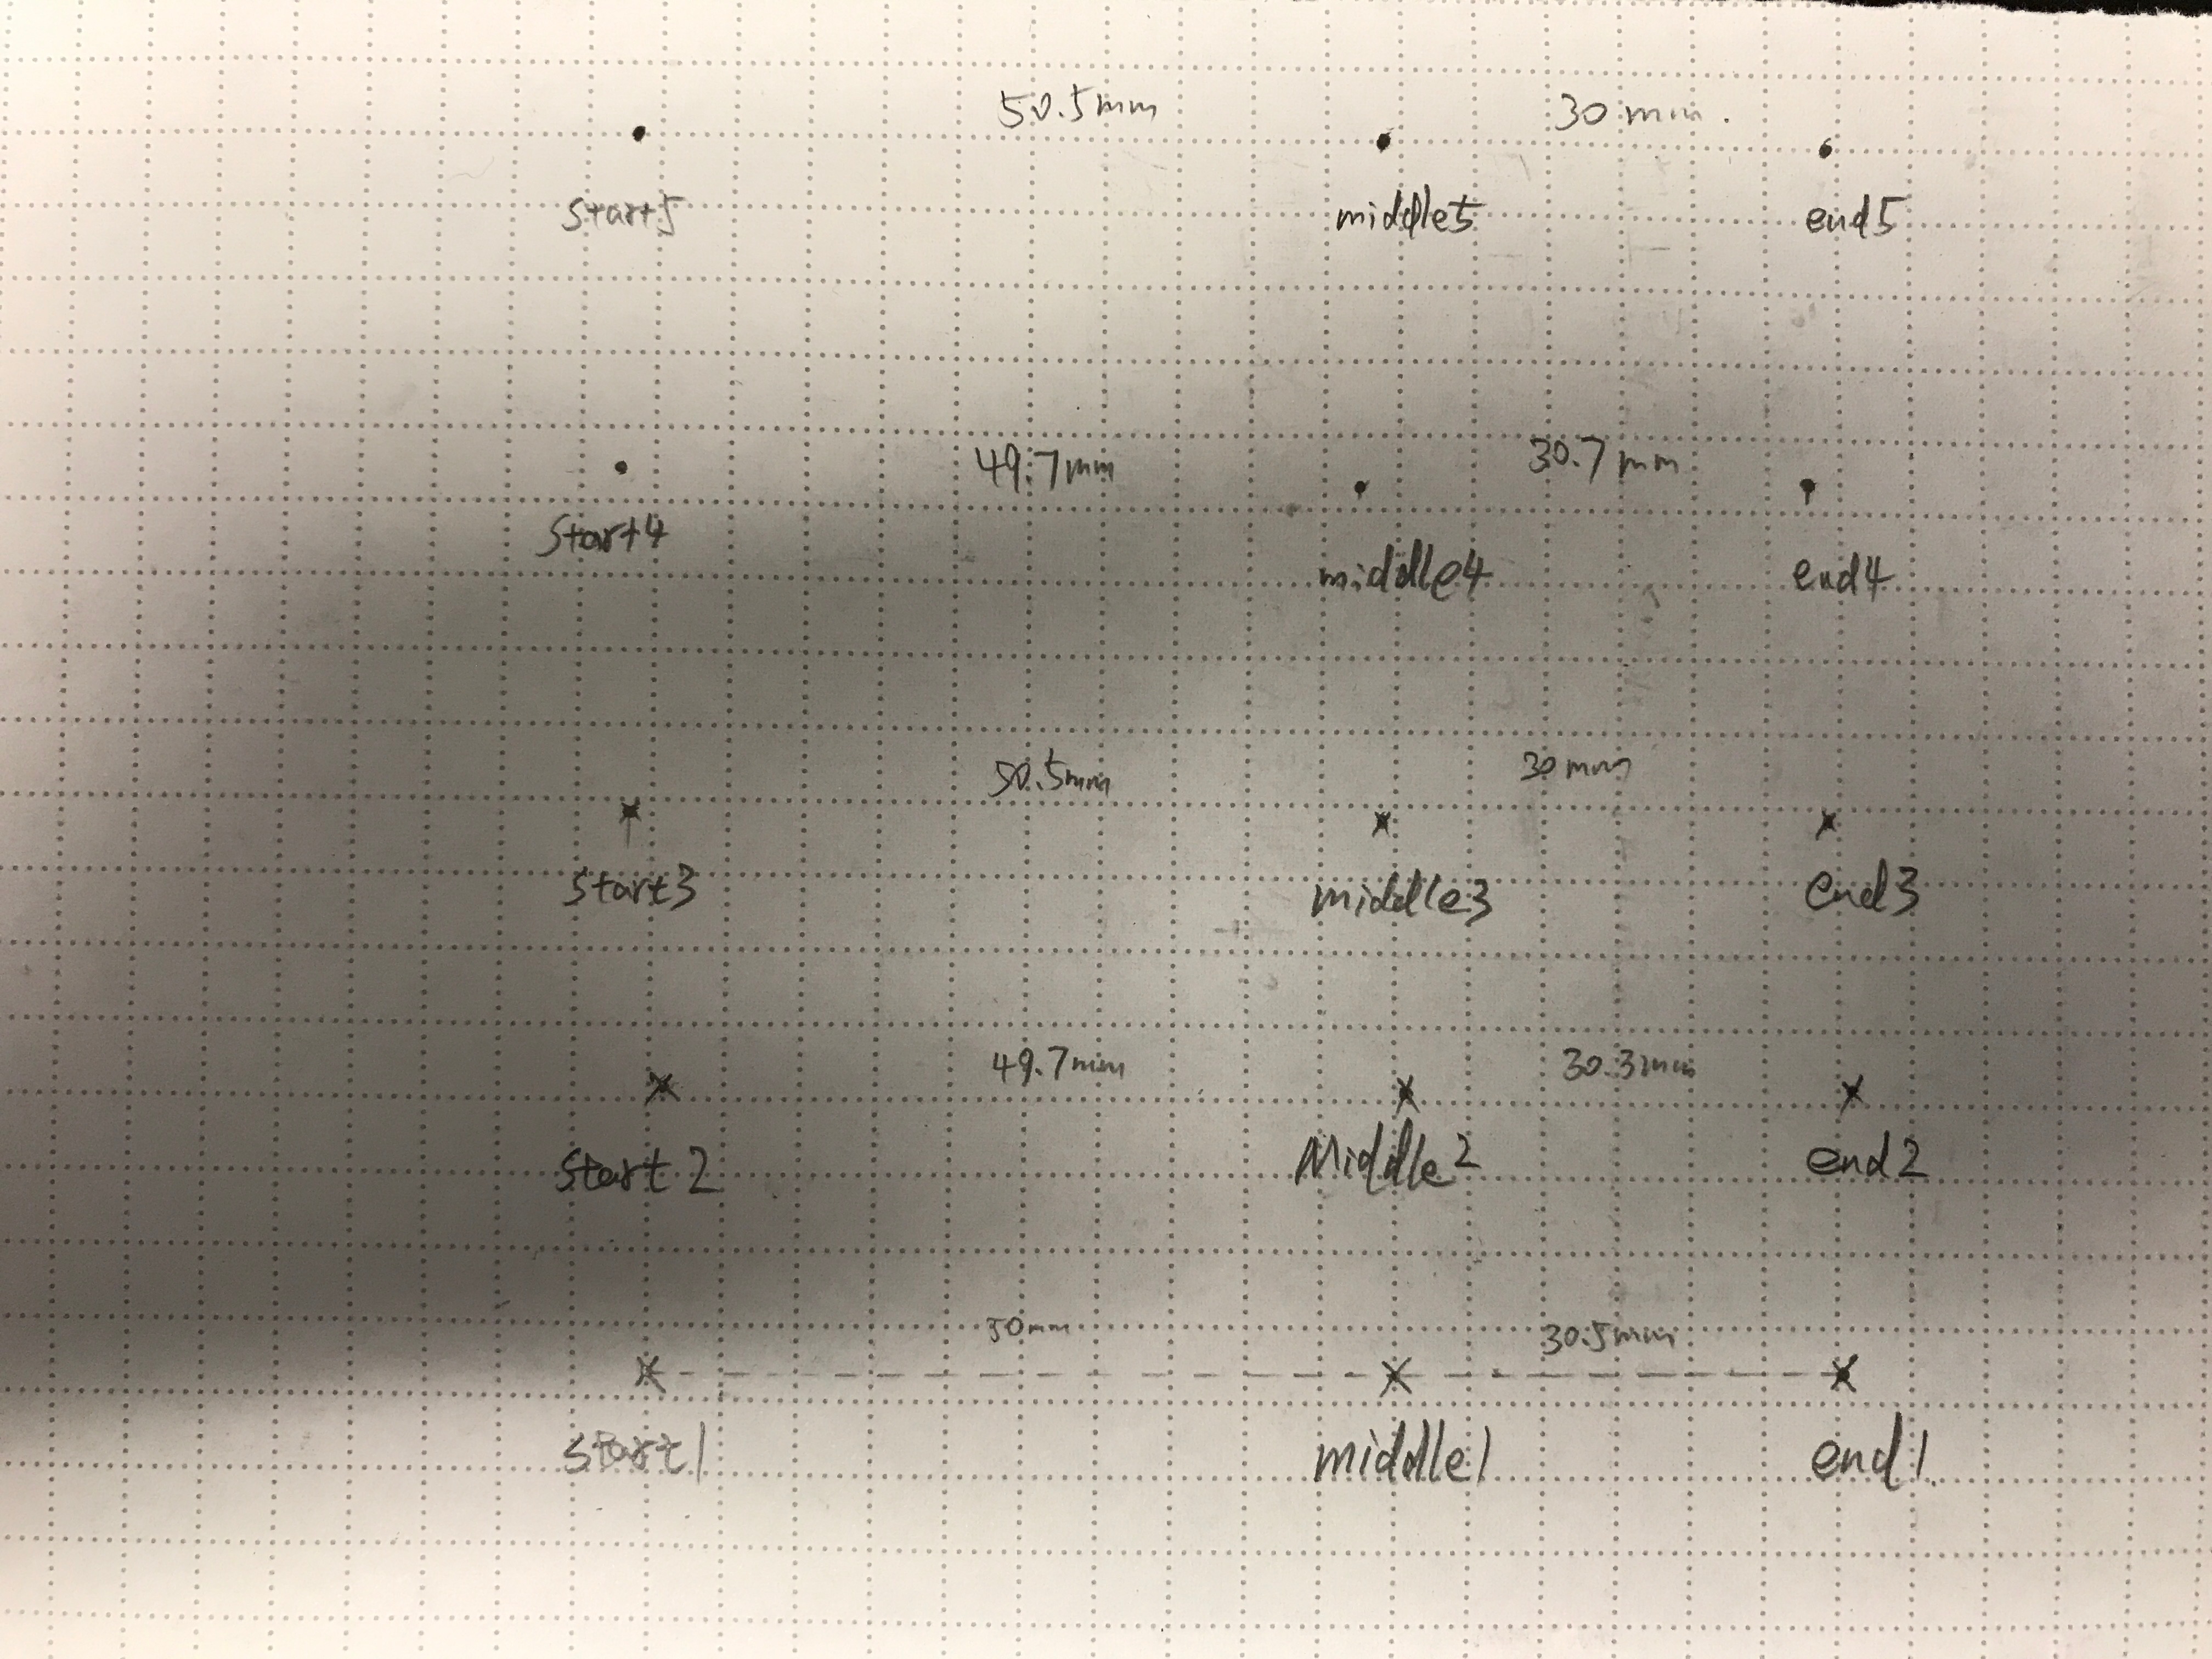 50.5mm 30mm.
start5 middle5 end5
49.7mm 30.7mm
start4 middle4 end4
50.5mm 30mm
start3 middle3 end3
49.7mm 30.3mm
start2 Middle2 end2
50mm 30.5mm
start1 middle1 end1